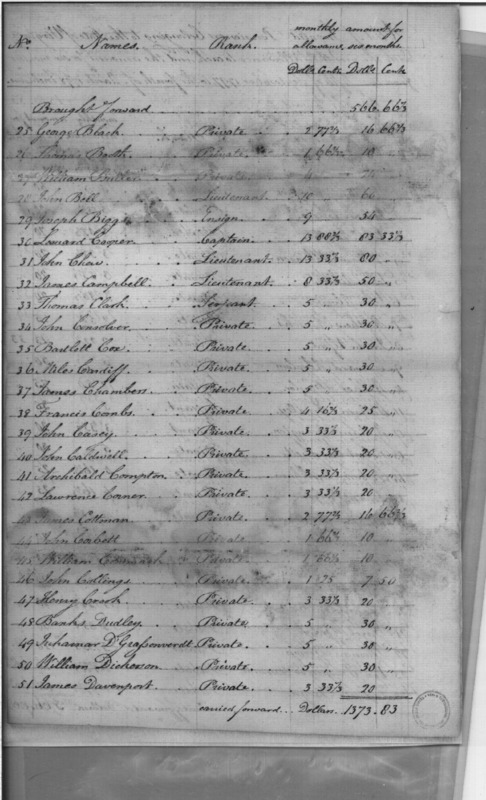 monthly amount for
No. Names. Rank. allowance, six months
Dolls Cents Dolls Cents
Brought forward 566 66⅔
25 George Black Private 2 77⅔ 16 66⅔
26 Private 1 66⅔ 10 "
27 William Butler Private 4 "
28 John Bell Lieutenant 10 " 60 "
29 Joseph Biggs Ensign 9 54
30 Leonard Cooper Captain 13 88⅔ 83 33⅓
31 John Chew Lieutenant 13 33⅓ 80
32 James Campbell Lieutenant 8 33⅓ 50 "
33 Thomas Clark Serjeant 5 30 "
34 John Consolver Private 5 " 30 "
35 Bartlett Cox Private 5 " 30 "
36 Miles Cardiff Private 5 " 30 "
37 James Chambers Private 5 " 30 "
38 Francis Combs Private 4 16⅔ 25 "
39 John Casey Private 3 33⅓ 20 "
40 John Caldwell Private 3 33⅓ 20 "
41 Archibald Compton Private 3 33⅓ 20 "
42 Lawrence Corner Private 3 33⅓ 20 "
43 James Cottman Private 2 77⅔ 16 66⅔
44 John Corbett Private 1 66⅔ 10 "
45 William Private 1 66⅔ 10 "
46 John Collings Private 1 25 7 50
47 Henry Private 3 33⅓ 20 "
48 Banks Dudley Private 5 " 30 "
49 Private 5 " 30 "
50 William Dickeson Private 5 " 30 "
51 James Davenport Private 3 33⅓ 20 "
carried forward Dollars 1373.83